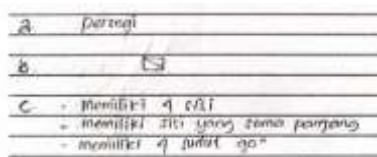 a. persegi
b.
c. - memiliki 4 sisi
- memiliki sisi yang sama panjang
- memiliki 4 sudut 90°